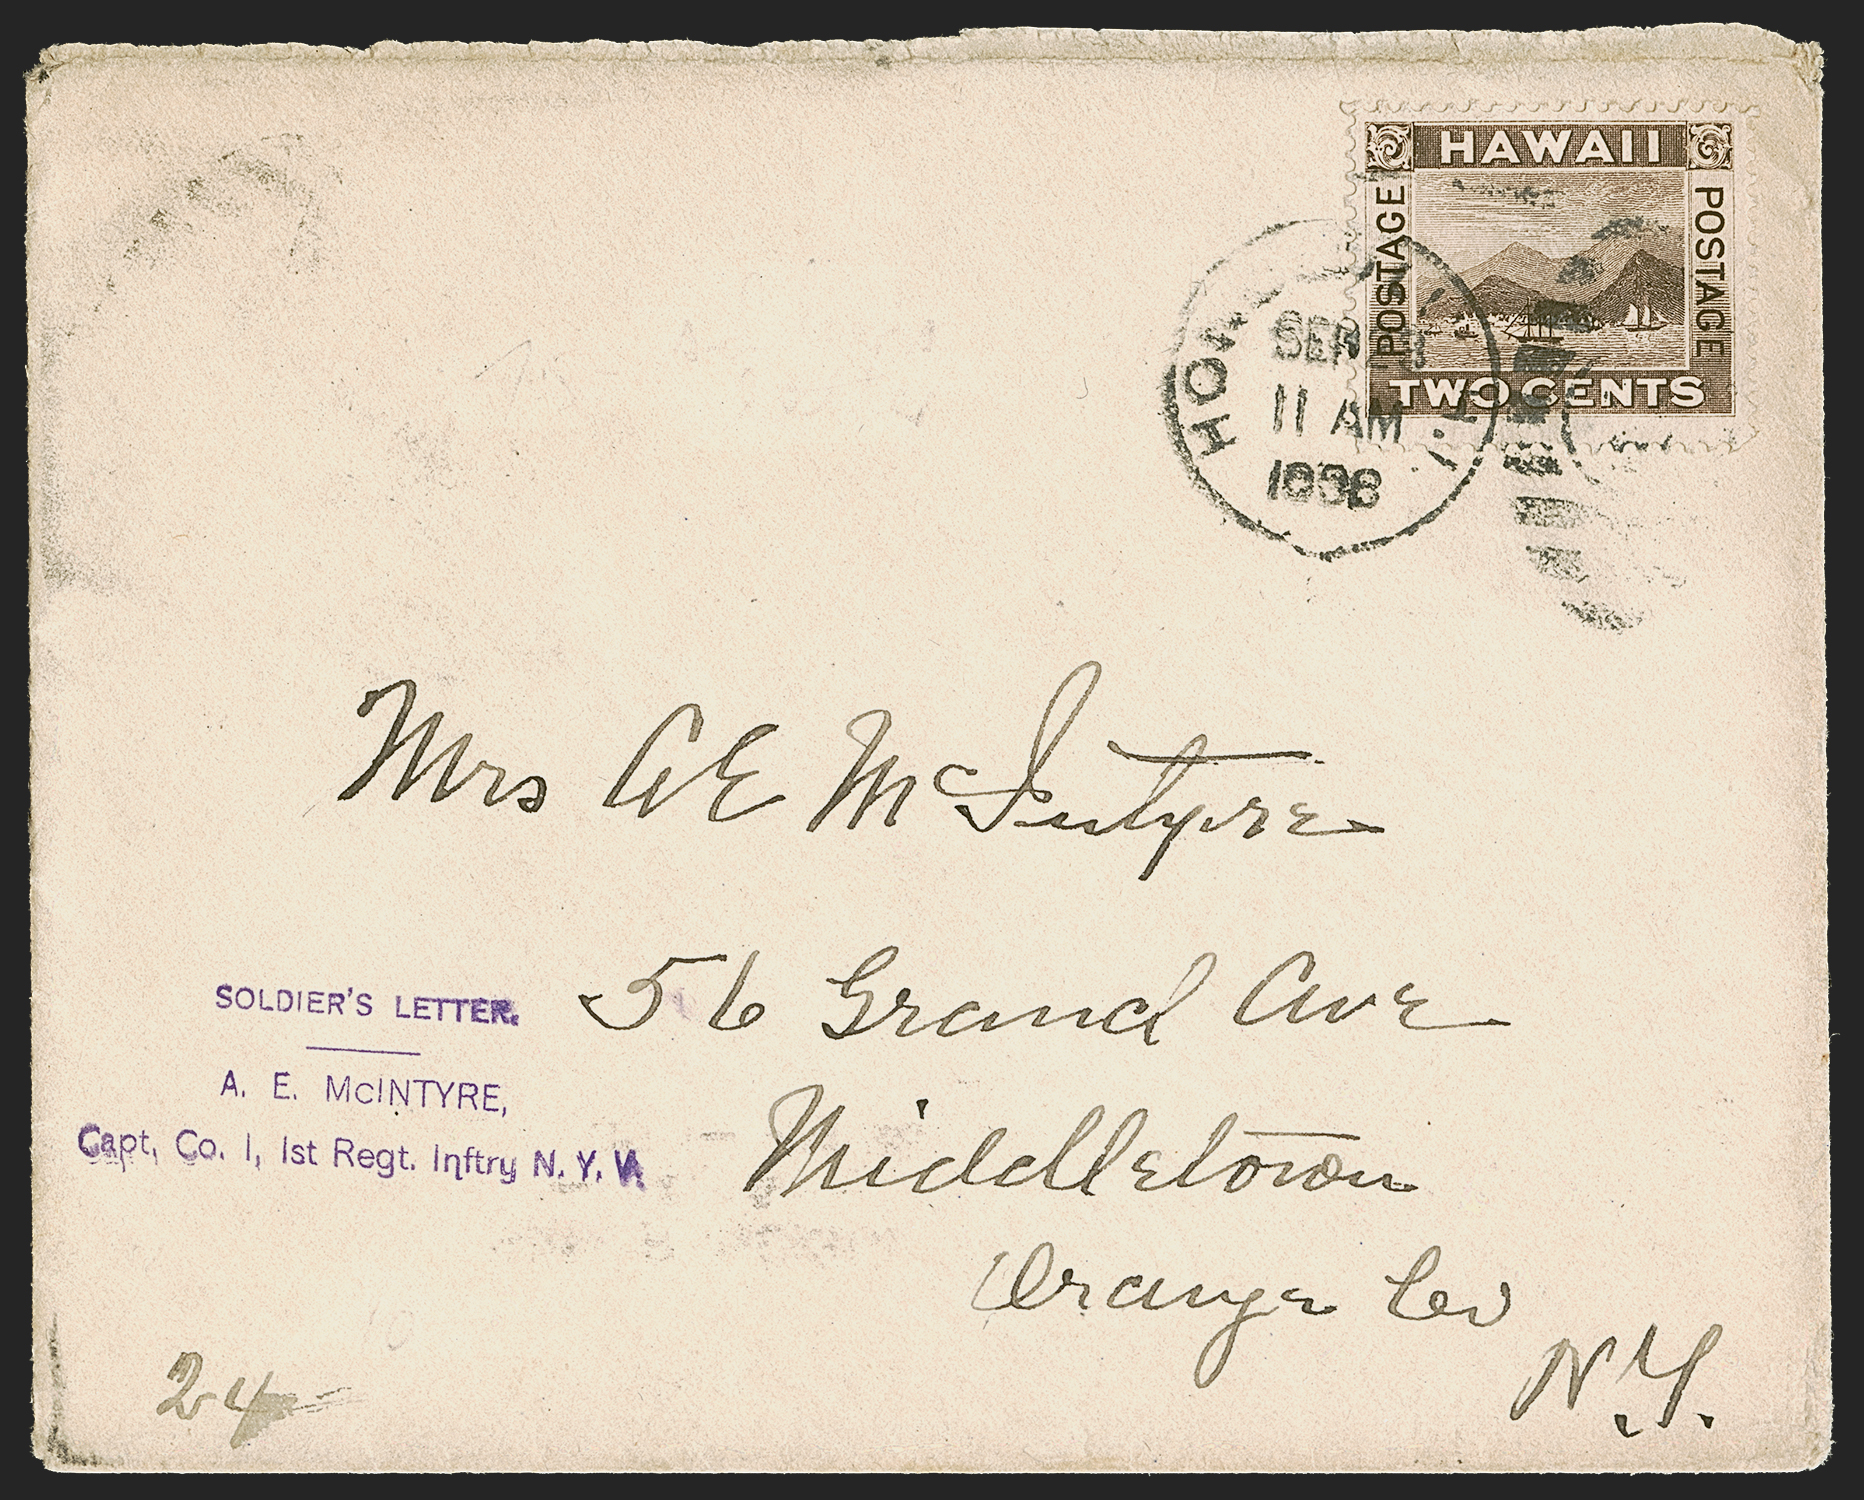 HAWAII
POSTAGE
POSTAGE
TWO CENTS
11 AM
1898
Mrs A E McIntyre
56 Grand Ave
Middletown
Orange Co
N.Y.
SOLDIER'S LETTER.
A. E. McINTYRE,
Capt, Co. I, 1st Regt. Inftry N. Y. V.
24